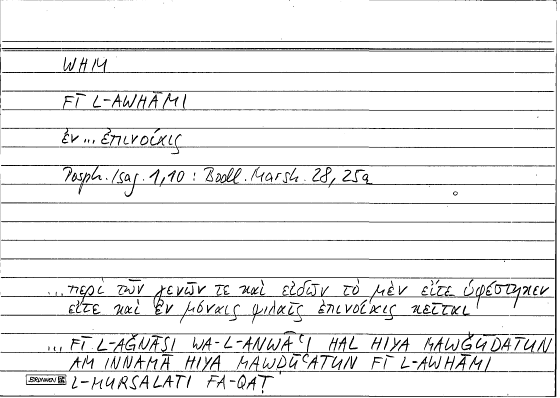 WHM
FĪ L-AWHĀMI
ἐν ... ἐπινοίαις
Porph. Isag. 1,10 : Bodl. Marsh. 28, 25a
... περὶ τῶν γενῶν τε καὶ εἰδῶν τὸ μὲν εἴτε ὑφέστηκεν
εἴτε καὶ ἐν μόναις ψιλαῖς ἐπινοίαις κεῖται
... FĪ L-AǦNĀSI WA-L-ANWĀʿI HAL HIYA MAWǦŪDATUN
AM INNAMĀ HIYA MAWḌŪʿATUN FĪ L-AWHĀMI
L-MURSALATI FA-QAṬ
BRUNNEN